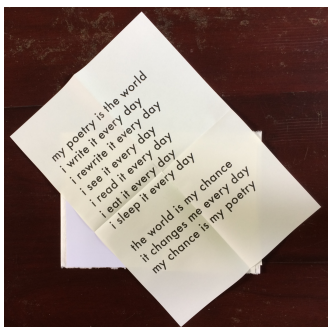 my poetry is the world
i write it every day
i rewrite it every day
i see it every day
i read it every day
i eat it every day
i sleep it every day
the world is my chance
it changes me every day
my chance is my poetry